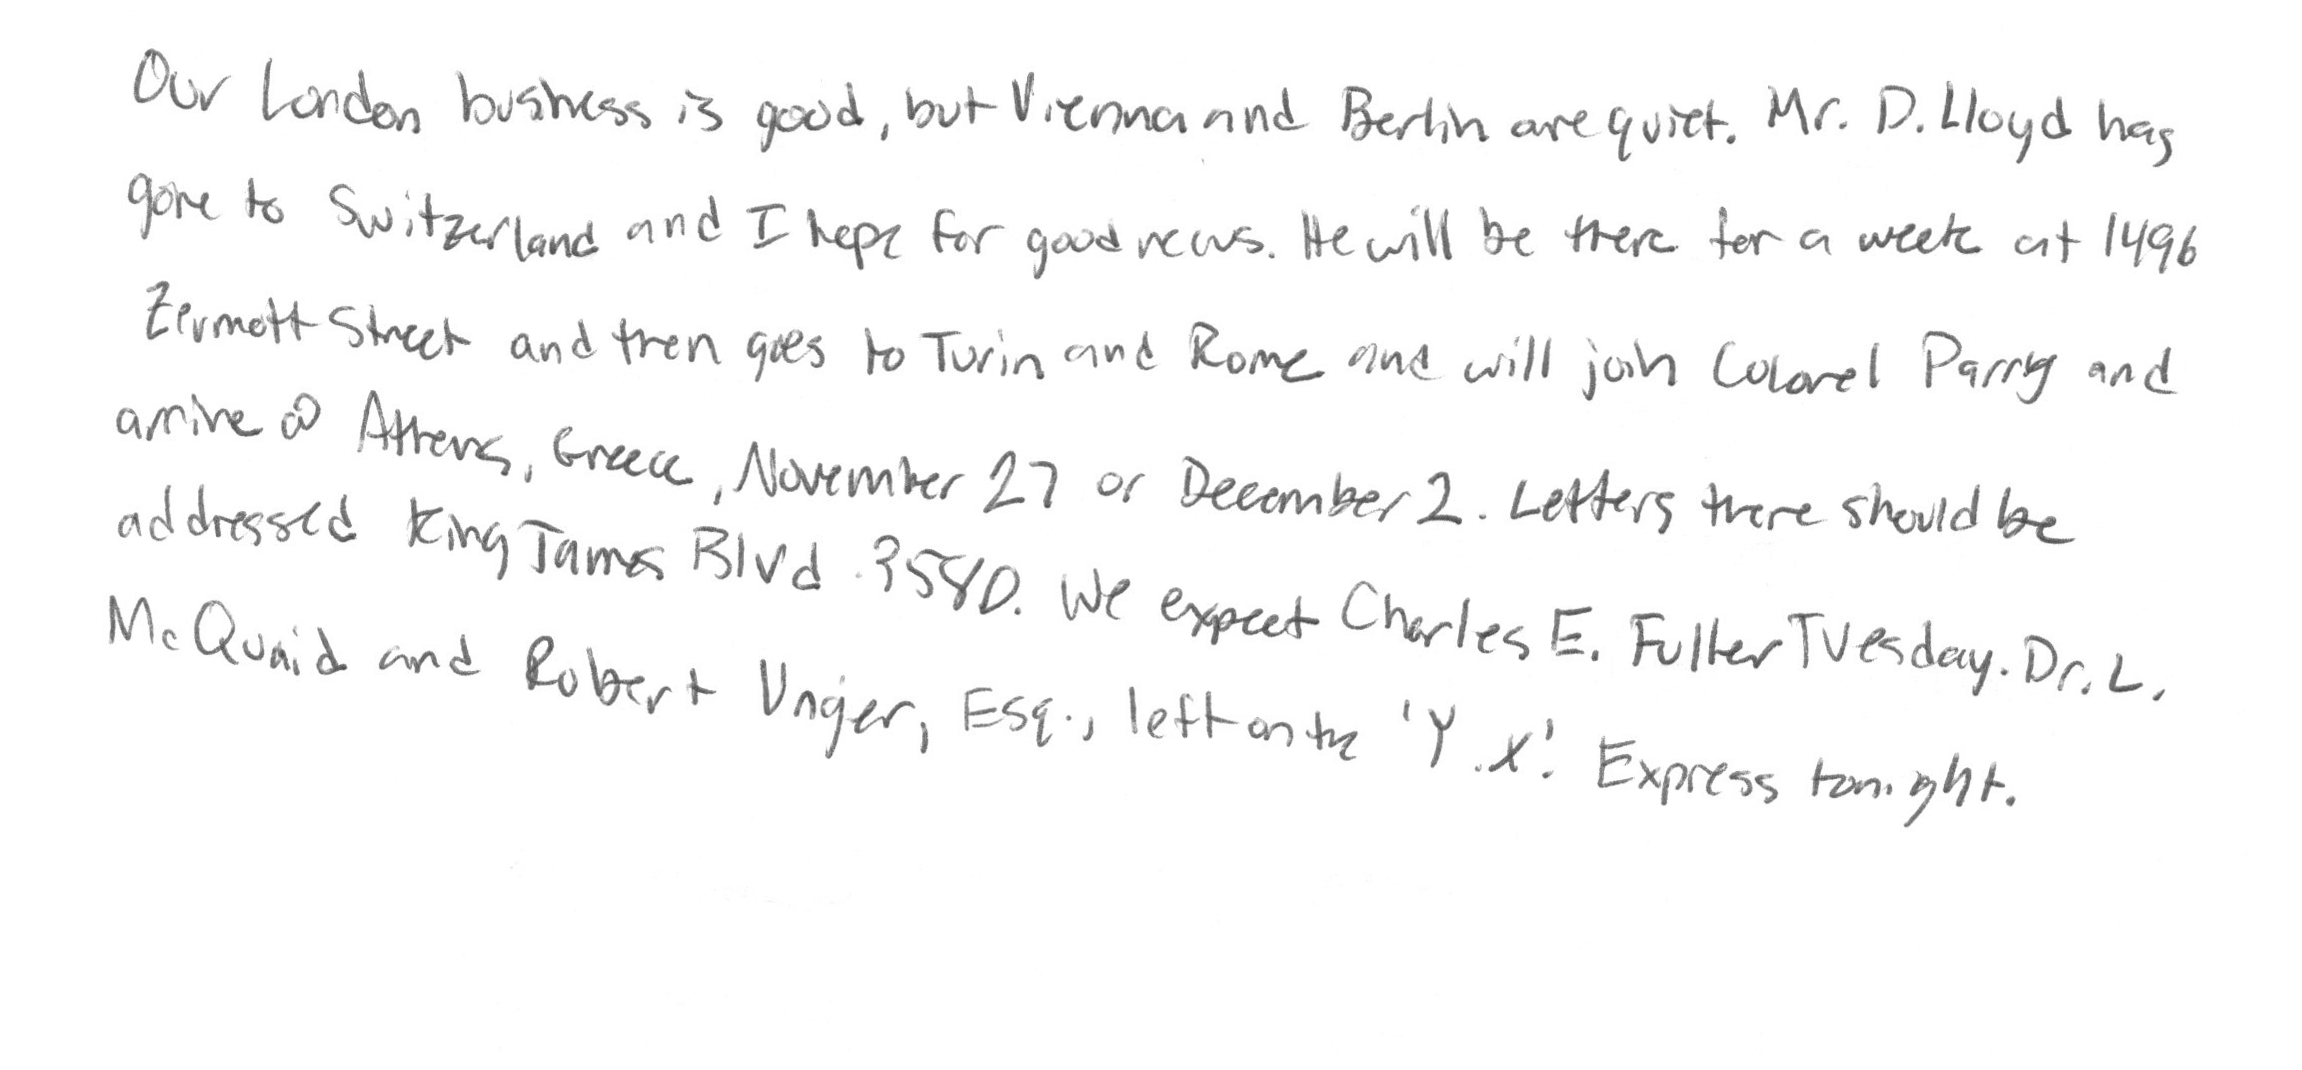 Our London business is good, but Vienna and Berlin are quiet. Mr. D. Lloyd has
gone to Switzerland and I hope for good news. He will be there for a week at 1496
Zermott Street and then goes to Turin and Rome and will join Colonel Parry and
arrive @ Athens, Greece, November 27 or December 2. Letters there should be
addressed King James Blvd. 3580. We expect Charles E. Fuller Tuesday. Dr. L.
McQuaid and Robert Unger, Esq., left on the 'Y.X.' Express tonight.